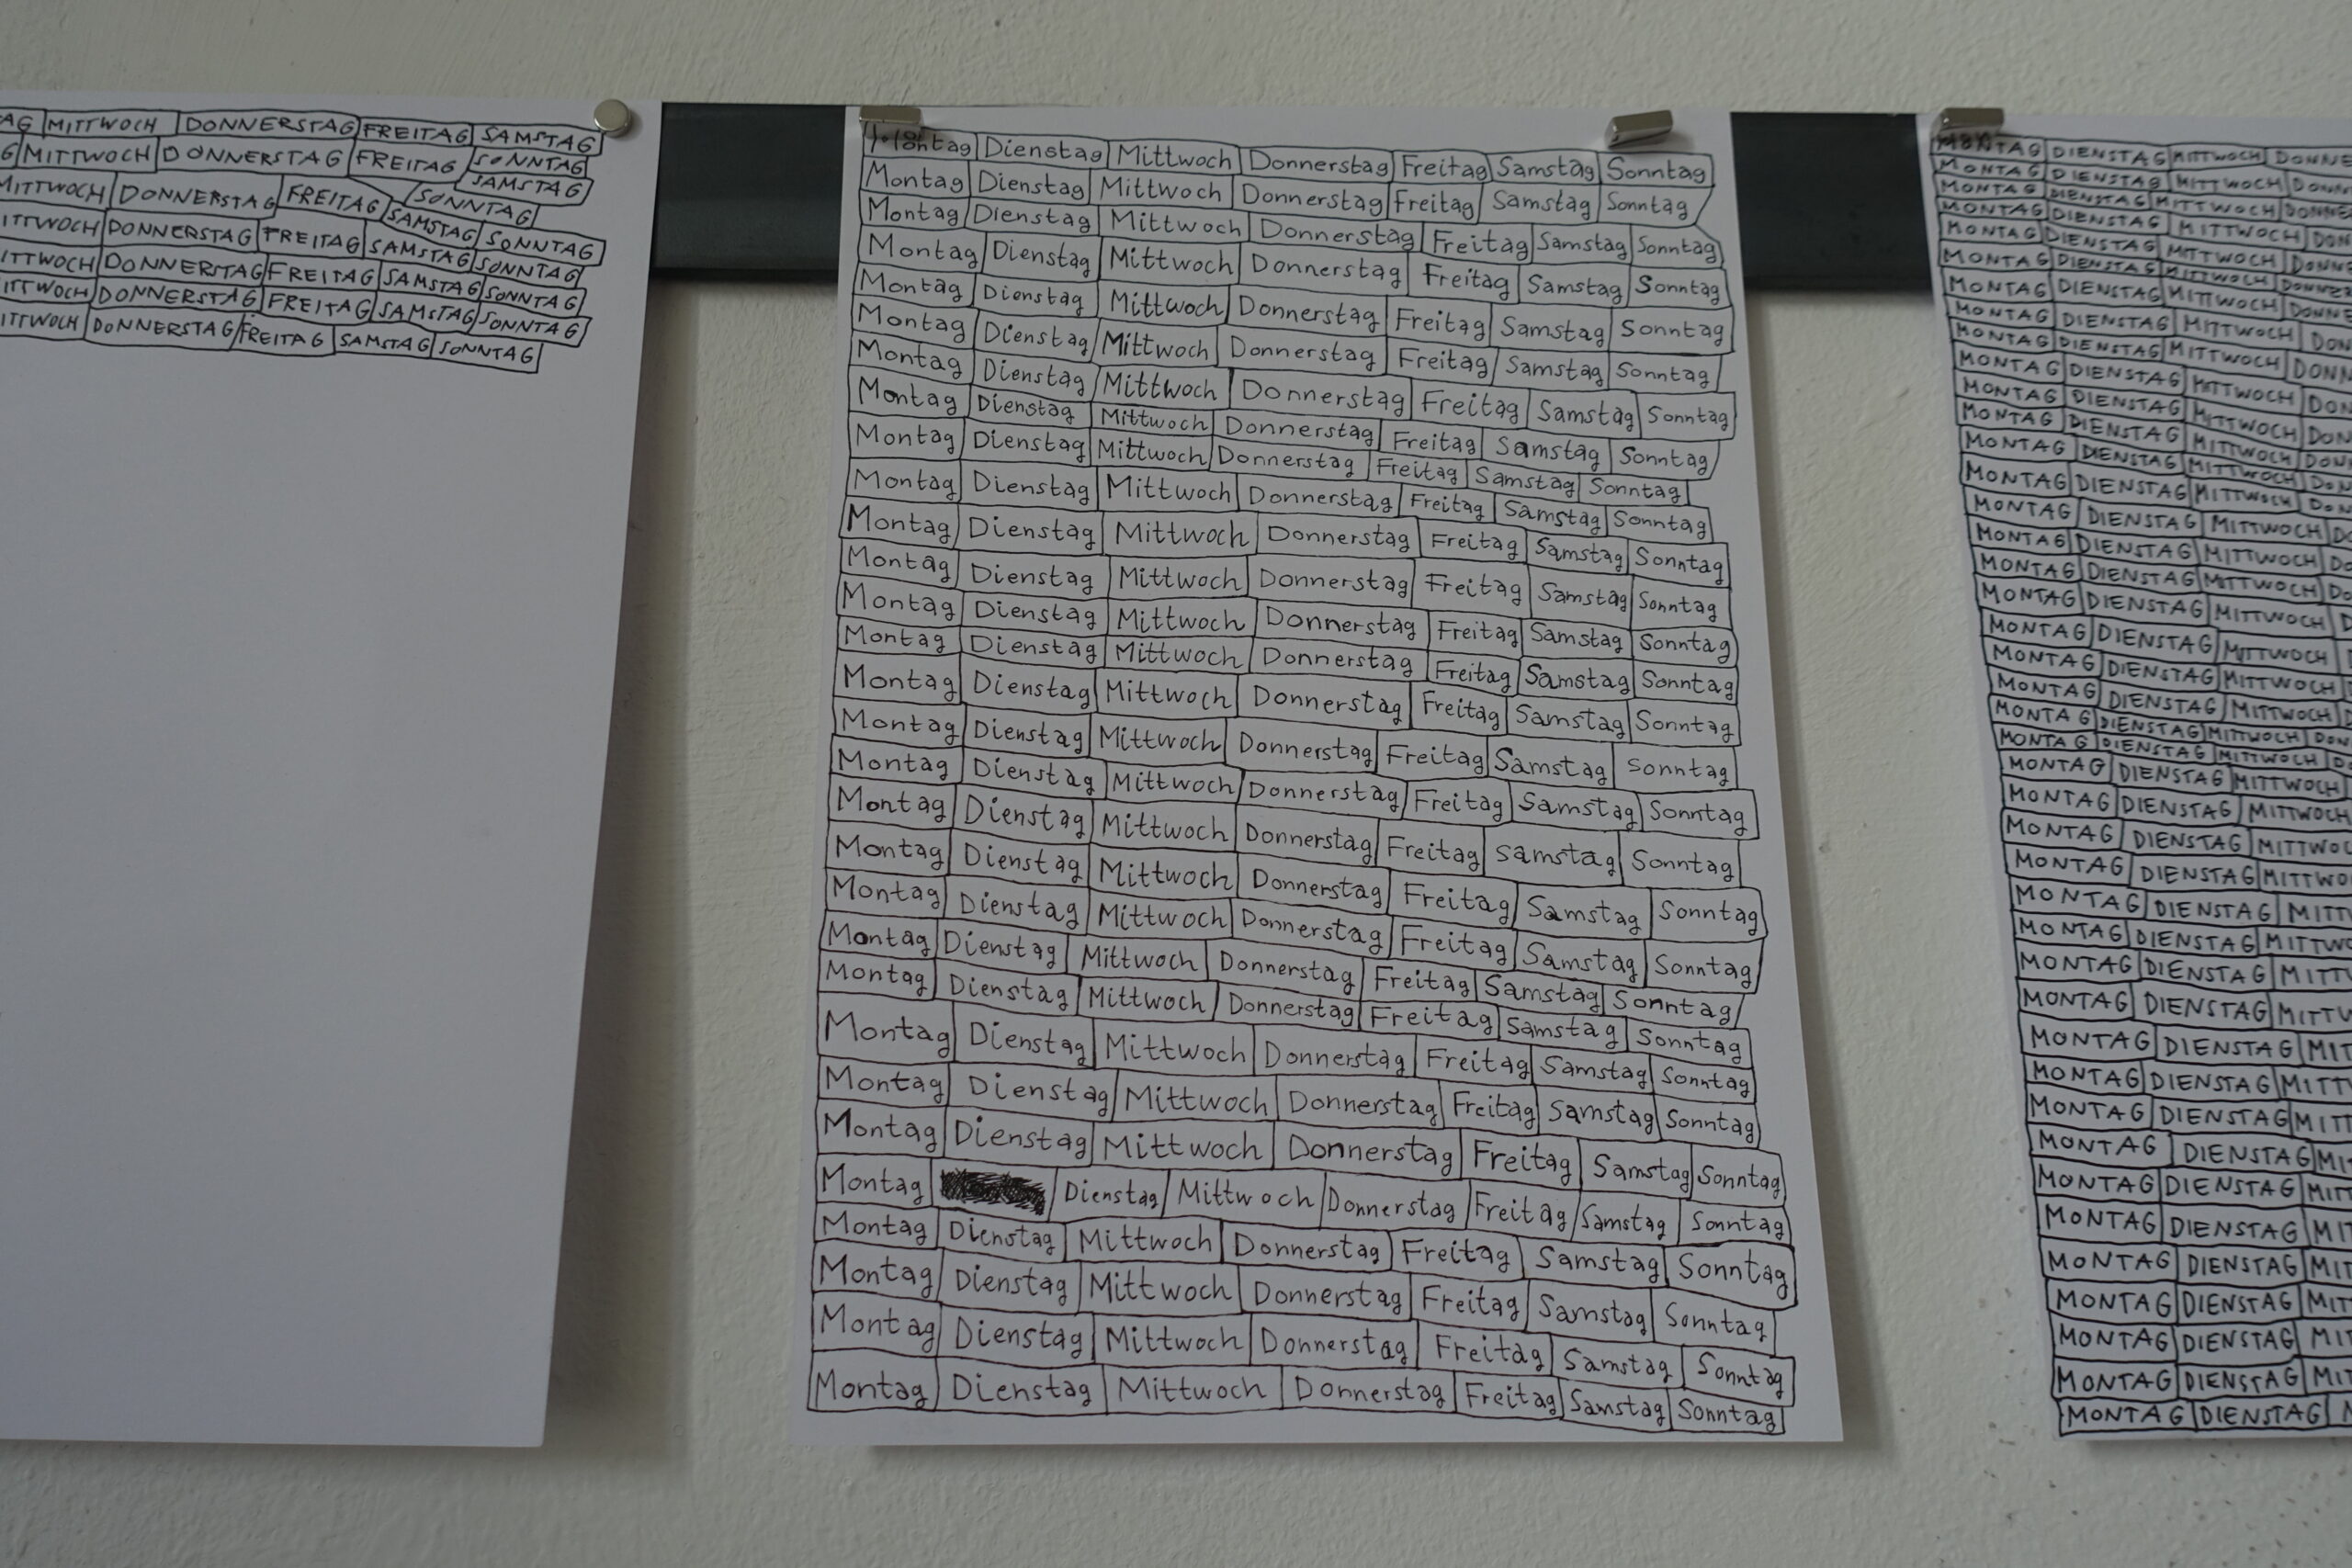 AG MITTWOCH DONNERSTAG FREITAG SAMSTAG SONNTAG
G MITTWOCH DONNERSTAG FREITAG SAMSTAG SONNTAG
MITTWOCH DONNERSTAG FREITAG SAMSTAG SONNTAG
ITTWOCH DONNERSTAG FREITAG SAMSTAG SONNTAG
ITTWOCH DONNERSTAG FREITAG SAMSTAG SONNTAG
ITTWOCH DONNERSTAG FREITAG SAMSTAG SONNTAG
ITTWOCH DONNERSTAG FREITAG SAMSTAG SONNTAG
Montag Dienstag Mittwoch Donnerstag Freitag Samstag Sonntag
Montag Dienstag Mittwoch Donnerstag Freitag Samstag Sonntag
Montag Dienstag Mittwoch Donnerstag Freitag Samstag Sonntag
Montag Dienstag Mittwoch Donnerstag Freitag Samstag Sonntag
Montag Dienstag Mittwoch Donnerstag Freitag Samstag Sonntag
Montag Dienstag Mittwoch Donnerstag Freitag Samstag Sonntag
Montag Dienstag Mittwoch Donnerstag Freitag Samstag Sonntag
Montag Dienstag Mittwoch Donnerstag Freitag Samstag Sonntag
Montag Dienstag Mittwoch Donnerstag Freitag Samstag Sonntag
Montag Dienstag Mittwoch Donnerstag Freitag Samstag Sonntag
Montag Dienstag Mittwoch Donnerstag Freitag Samstag Sonntag
Montag Dienstag Mittwoch Donnerstag Freitag Samstag Sonntag
Montag Dienstag Mittwoch Donnerstag Freitag Samstag Sonntag
Montag Dienstag Mittwoch Donnerstag Freitag Samstag Sonntag
Montag Dienstag Mittwoch Donnerstag Freitag Samstag Sonntag
Montag Dienstag Mittwoch Donnerstag Freitag Samstag Sonntag
Montag Dienstag Mittwoch Donnerstag Freitag Samstag Sonntag
Montag Dienstag Mittwoch Donnerstag Freitag Samstag Sonntag
Montag Dienstag Mittwoch Donnerstag Freitag Samstag Sonntag
Montag Dienstag Mittwoch Donnerstag Freitag Samstag Sonntag
Montag Dienstag Mittwoch Donnerstag Freitag Samstag Sonntag
Montag Dienstag Mittwoch Donnerstag Freitag Samstag Sonntag
Montag Dienstag Mittwoch Donnerstag Freitag Samstag Sonntag
Montag Dienstag Mittwoch Donnerstag Freitag Samstag Sonntag
Montag Dienstag Mittwoch Donnerstag Freitag Samstag Sonntag
Montag Dienstag Mittwoch Donnerstag Freitag Samstag Sonntag
Montag Dienstag Mittwoch Donnerstag Freitag Samstag Sonntag
Montag Dienstag Mittwoch Donnerstag Freitag Samstag Sonntag
Montag Dienstag Mittwoch Donnerstag Freitag Samstag Sonntag
Montag Dienstag Mittwoch Donnerstag Freitag Samstag Sonntag
MONTAG DIENSTAG MITTWOCH DONNE
MONTAG DIENSTAG MITTWOCH DONN
MONTAG DIENSTAG MITTWOCH DONNE
MONTAG DIENSTAG MITTWOCH DON
MONTAG DIENSTAG MITTWOCH DONN
MONTAG DIENSTAG MITTWOCH DONNER
MONTAG DIENSTAG MITTWOCH DONNE
MONTAG DIENSTAG MITTWOCH DON
MONTAG DIENSTAG MITTWOCH DONN
MONTAG DIENSTAG MITTWOCH DON
MONTAG DIENSTAG MITTWOCH DON
MONTAG DIENSTAG MITTWOCH DON
MONTAG DIENSTAG MITTWOCH DON
MONTAG DIENSTAG MITTWOCH DON
MONTAG DIENSTAG MITTWOCH DO
MONTAG DIENSTAG MITTWOCH DO
MONTAG DIENSTAG MITTWOCH DO
MONTAG DIENSTAG MITTWOCH D
MONTAG DIENSTAG MITTWOCH
MONTAG DIENSTAG MITTWOCH
MONTAG DIENSTAG MITTWOCH D
MONTAG DIENSTAG MITTWOCH DON
MONTAG DIENSTAG MITTWOCH DO
MONTAG DIENSTAG MITTWOCH
MONTAG DIENSTAG MITTWOCH
MONTAG DIENSTAG MITTWOC
MONTAG DIENSTAG MITTWO
MONTAG DIENSTAG MITT
MONTAG DIENSTAG MITTWO
MONTAG DIENSTAG MITTW
MONTAG DIENSTAG MITTW
MONTAG DIENSTAG MIT
MONTAG DIENSTAG MITT
MONTAG DIENSTAG MITT
MONTAG DIENSTAG MI
MONTAG DIENSTAG MIT
MONTAG DIENSTAG MIT
MONTAG DIENSTAG MIT
MONTAG DIENSTAG MIT
MONTAG DIENSTAG MIT
MONTAG DIENSTAG MIT
MONTAG DIENSTAG M